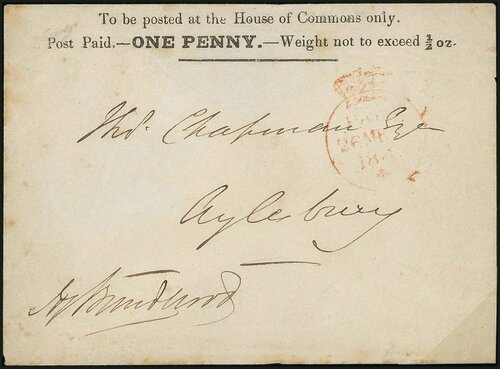 To be posted at the House of Commons only.
Post Paid.—ONE PENNY.—Weight not to exceed ½ oz.
Thos. Chapman Esqe
Aylesbury